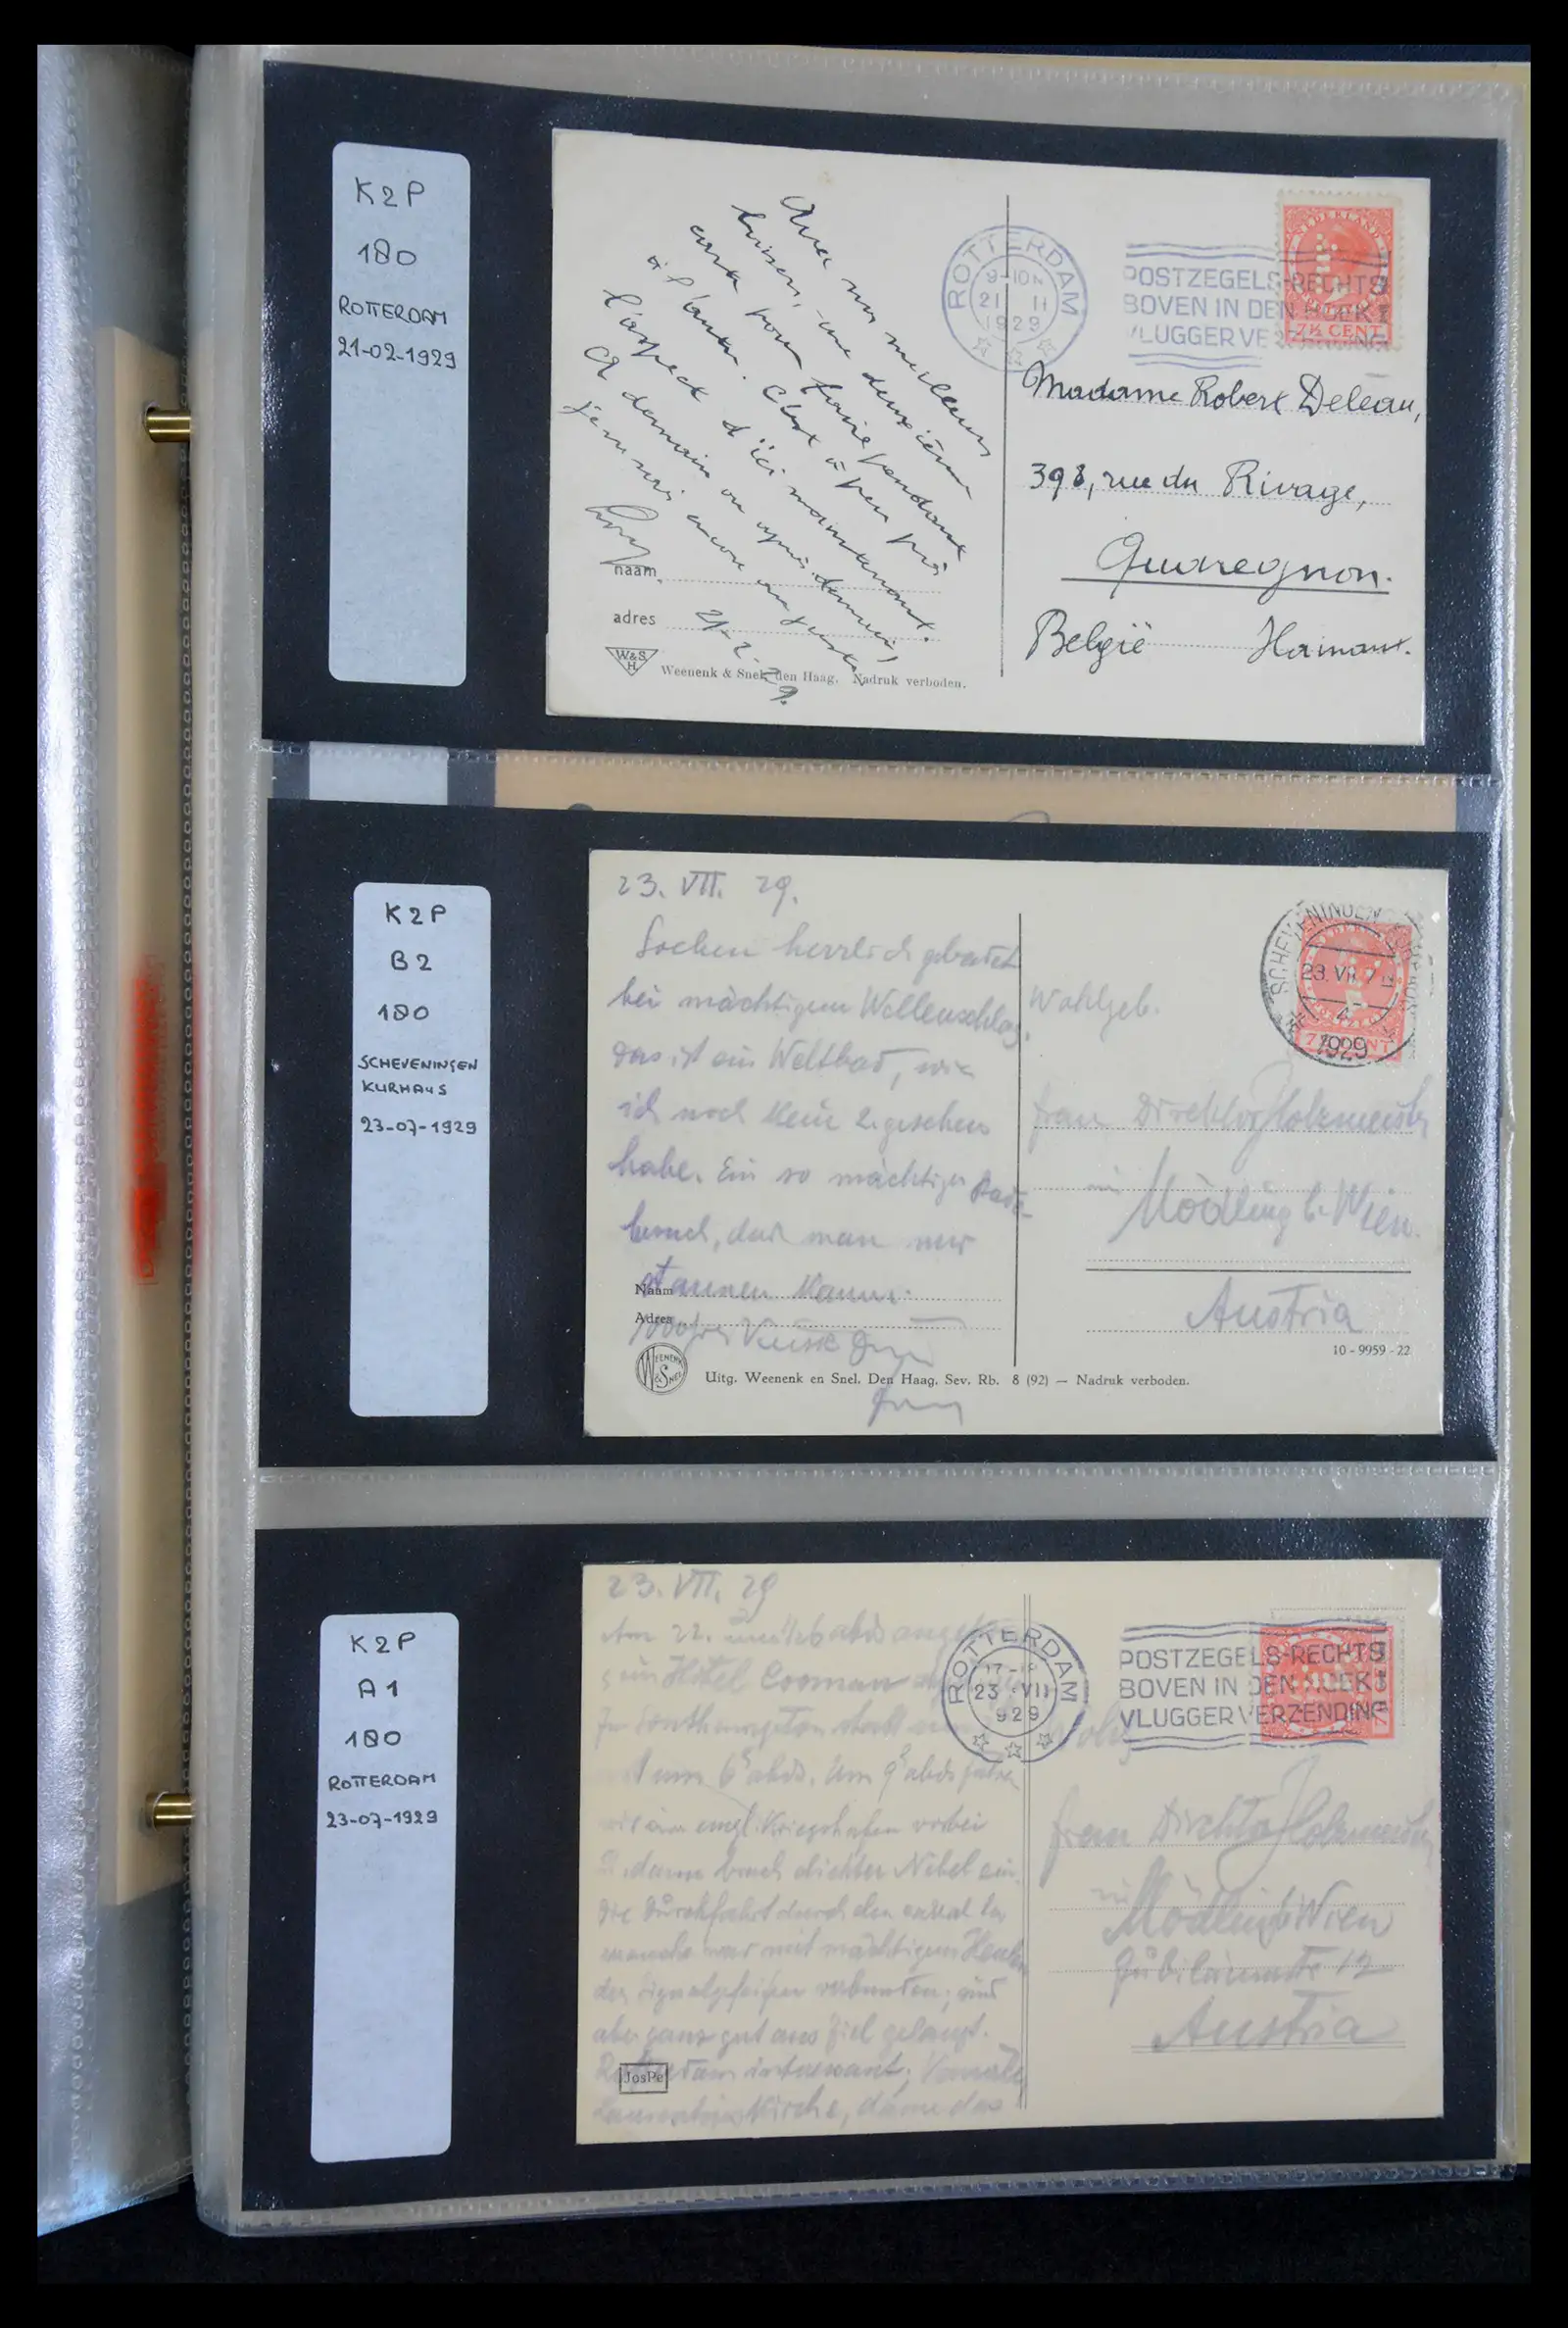 K2P
180
ROTTERDAM
21-02-1929
Avec nos meilleurs
baisers, une deuxième
carte pour faire pendant
à l'autre. C'est à peu près
l'aspect d'ici maintenant.
A demain ou après-demain!
naam
adres
21-2-29.
W&S
H
Weenenk & Snel, den Haag. Nadruk verboden.
ROTTERDAM
9-10 N
21 II
1929
POSTZEGELS-RECHTS
BOVEN IN DEN HOEK
VLUGGER VERZENDING
NEDERLAND
7½ CENT
Madame Robert Deleau,
398, rue du Rivage,
Quaregnon.
België Hainaut.
K2P
B2
180
SCHEVENINGEN
KURHAUS
23-07-1929
23. VII. 29.
Soeben herrlich gebadet
bei mächtigem Wellenschlag,
das ist ein Weltbad, wie
ich noch keine gesehen
habe. Ein so mächtiger
man nur
staunen kann.
Naam
Adres
WEENENK & SNEL
Uitg. Weenenk en Snel. Den Haag. Sev. Rb. 8 (92) — Nadruk verboden.
SCHEVENINGEN
23.VII.7
4
1929
Wohlgeb.
Frau Direktor Holzmeister
in Mödling b. Wien.
Austria
10 - 9959 - 22
K2P
A1
180
ROTTERDAM
23-07-1929
23. VII. 29
Am 22.
im Hôtel Cooman
um 6 abds. Um 9 abds fuhren
wir am engl. Kriegshafen vorbei
dann brach dichter Nebel ein.
Die Durchfahrt durch den Canal la
manche war mit mächtigem Heulen
der Signalpfeifen verbunden, sind
aber ganz gut ans Ziel gelangt.
Rotterdam interessant,
Kirche, dann das
JosPe
ROTTERDAM
23 VII
1929
POSTZEGELS-RECHTS
BOVEN IN DEN HOEK
VLUGGER VERZENDING
Frau Direktor Holzmeister
in
Mödling b Wien
12
Austria